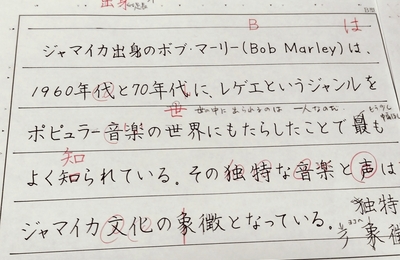 出身
B は
ジャマイカ出身のボブ・マーリー(Bob Marley)は、
1960年代と70年代に、レゲエというジャンルを
世
ポピュラー音楽の世界にもたらしたことで最も
知
よく知られている。その独特な音楽と声は
ジャマイカ文化の象徴となっている。
独特
象徴